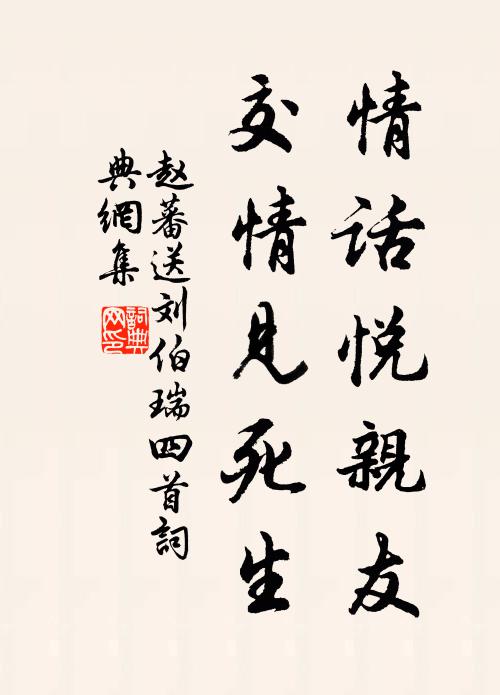 情话悦親友
交情見死生
赵蕃送刘伯瑞四首詞
典網集
詞典网印